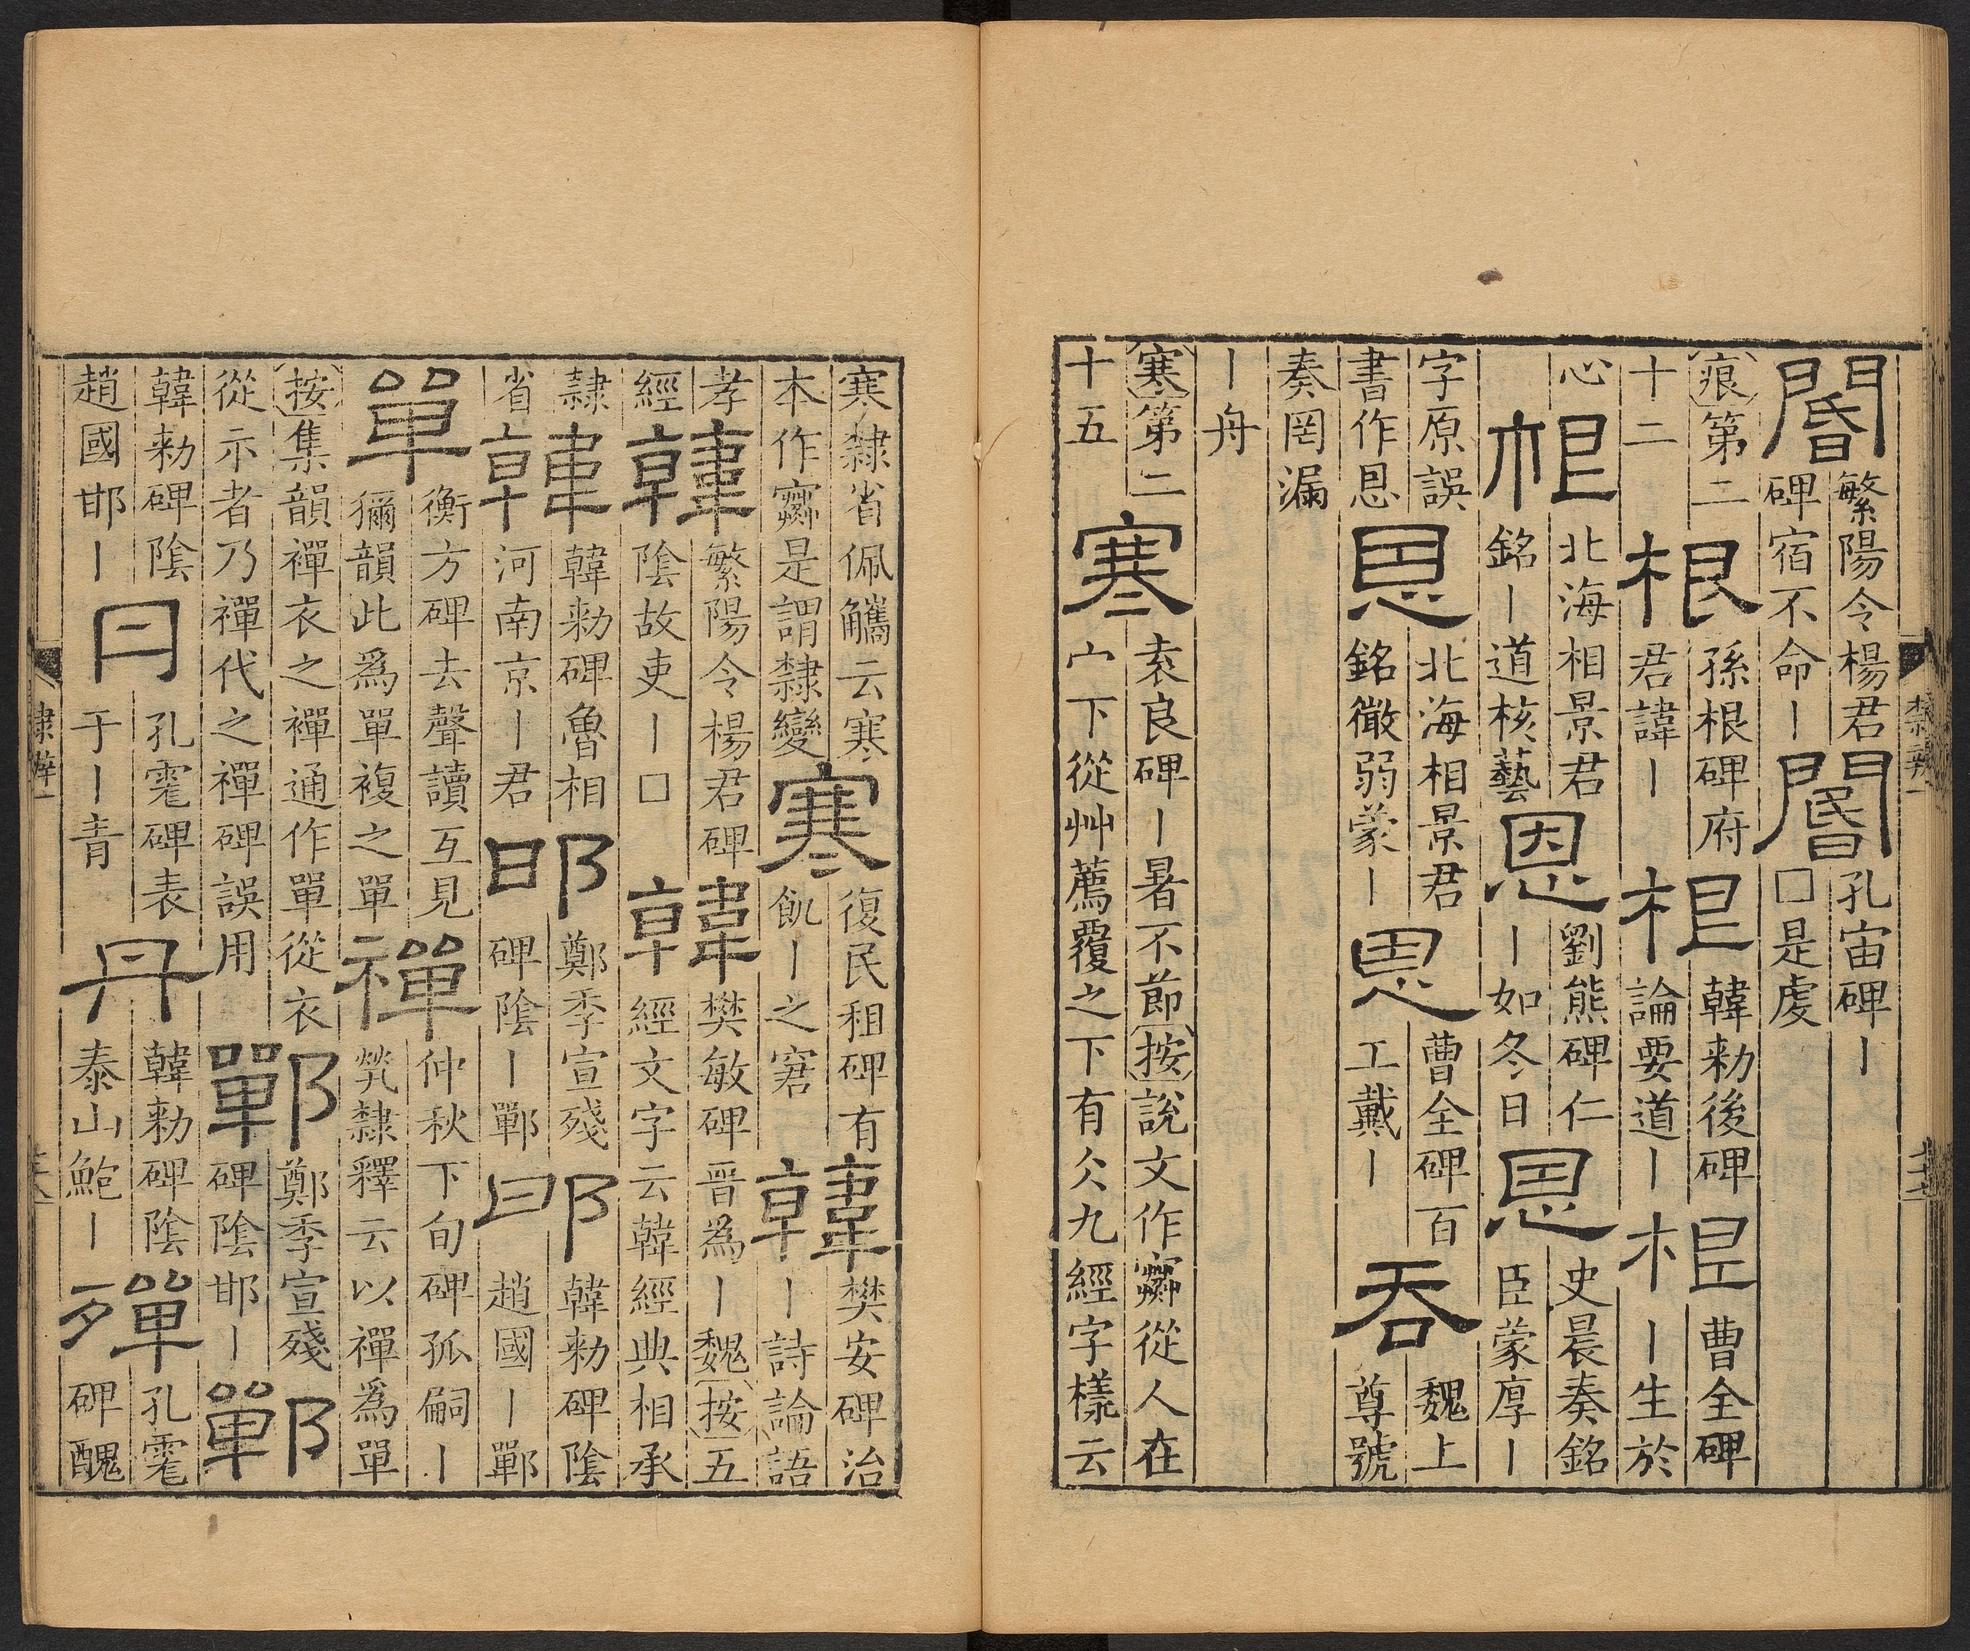 閽
繁陽令楊君
碑宿不命丨
閽
孔宙碑丨
□是虔
痕第二
十二
根
孫根碑府
君諱丨
根
韓勑後碑
論要道丨
根
曹全碑
丨生於
心
根
北海相景君
銘丨道核藝
恩
劉熊碑仁
丨如冬日
恩
史晨奏銘
臣蒙厚丨
字原誤
書作恩
恩
北海相景君
銘徽弱蒙丨
恩
曹全碑百
工戴丨
吞
魏上
尊號
奏罔漏
丨舟
寒第二
十五
寒
袁良碑丨暑不節按說文作𡫾從人在
宀下從茻薦覆之下有仌九經字樣云
隸辨一
寒隸省佩觿云寒
本作𡫾是謂隸變
寒
復民租碑有
飢丨之窘
韓
樊安碑治
丨詩論語
孝
經
韓
繁陽令楊君碑
陰故吏丨□
韓
樊敏碑晉爲丨魏按五
經文字云韓經典相承
隸
省
韓
韓勑碑魯相
河南京丨君
邯
鄭季宣殘
碑陰丨鄲
邯
韓勑碑陰
趙國丨鄲
單
衡方碑去聲讀互見
獮韻此爲單複之單
禪
仲秋下旬碑孤嗣丨
煢隸釋云以禪爲單
按集韻襌衣之襌通作單從衣
從示者乃禪代之禪碑誤用
鄲
鄭季宣殘
碑陰邯丨
鄲
韓勑碑陰
趙國邯丨
丹
孔彪碑表
于丨青
丹
韓勑碑陰
泰山鮑丨
殫
孔彪
碑醜
隸辨一